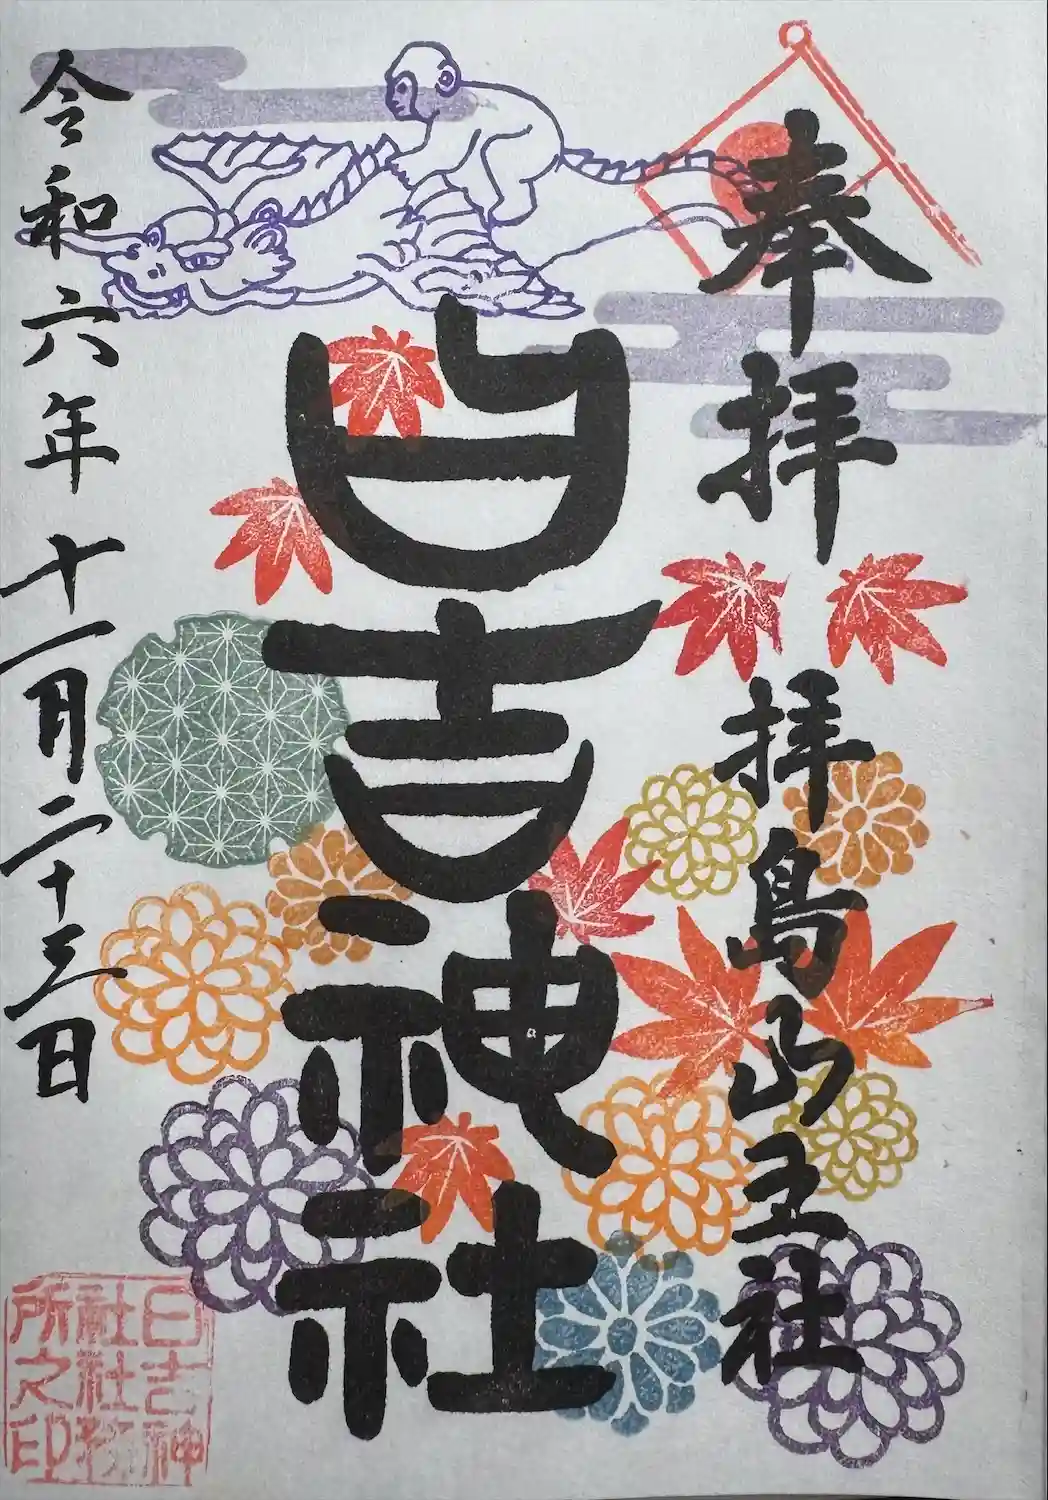 奉拝
拝島山王社
日吉神社
令和六年十一月二十三日
日吉神
社社務
所之印